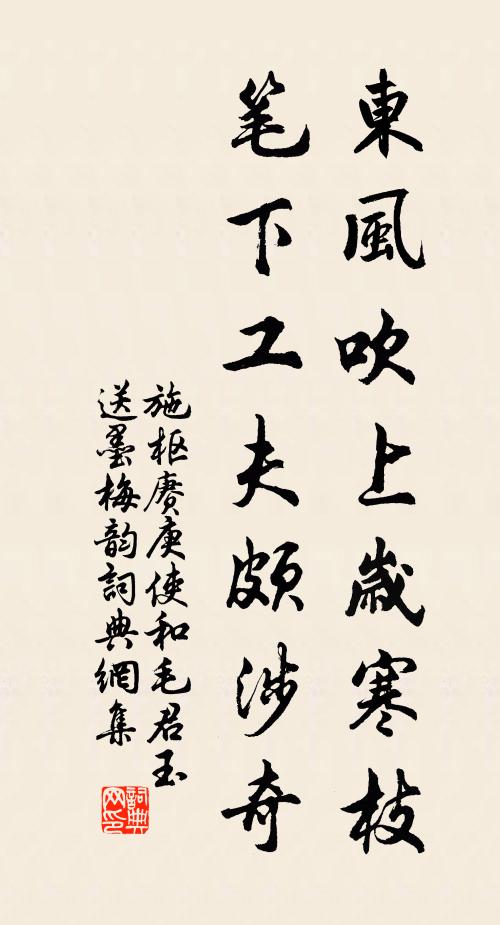 東風吹上歲寒枝
笔下工夫頗涉奇
施枢赓庚使和毛君玉
送墨梅韵詞典網集
詞典
网印